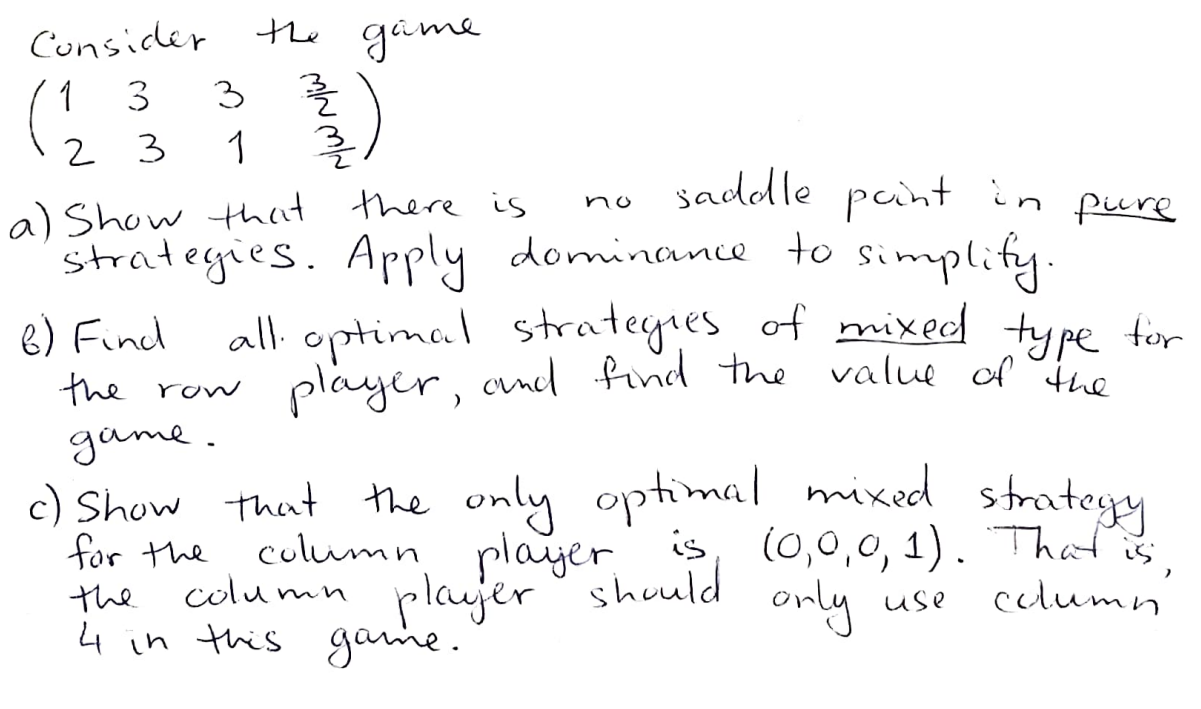 Consider the game
( 1 3 3 3/2 )
( 2 3 1 3/2 )
a) Show that there is no saddle point in pure
strategies. Apply dominance to simplify.
b) Find all optimal strategies of mixed type for
the row player, and find the value of the
game.
c) Show that the only optimal mixed strategy
for the column player is (0,0,0,1). That is,
the column player should only use column
4 in this game.